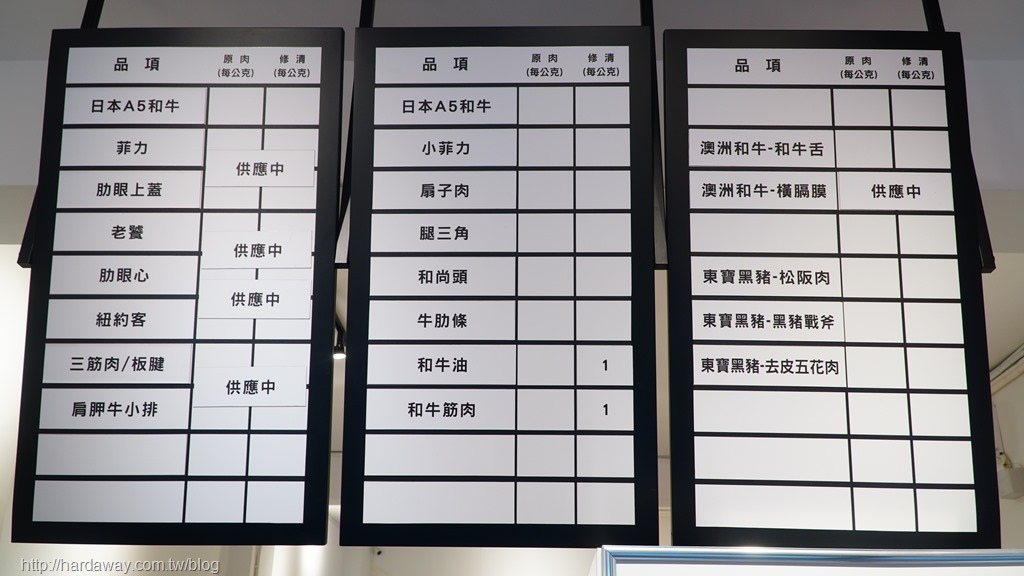 品項 原肉 (每公克) 修清 (每公克)
日本A5和牛
菲力
供應中
肋眼上蓋
老饕
供應中
肋眼心
供應中
紐約客
三筋肉/板腱
供應中
肩胛牛小排
品項 原肉 (每公克) 修清 (每公克)
日本A5和牛
小菲力
扇子肉
腿三角
和尚頭
牛肋條
和牛油 1
和牛筋肉 1
品項 原肉 (每公克) 修清 (每公克)
澳洲和牛-和牛舌
澳洲和牛-橫膈膜 供應中
東寶黑豬-松阪肉
東寶黑豬-黑豬戰斧
東寶黑豬-去皮五花肉
http://hardaway.com.tw/blog